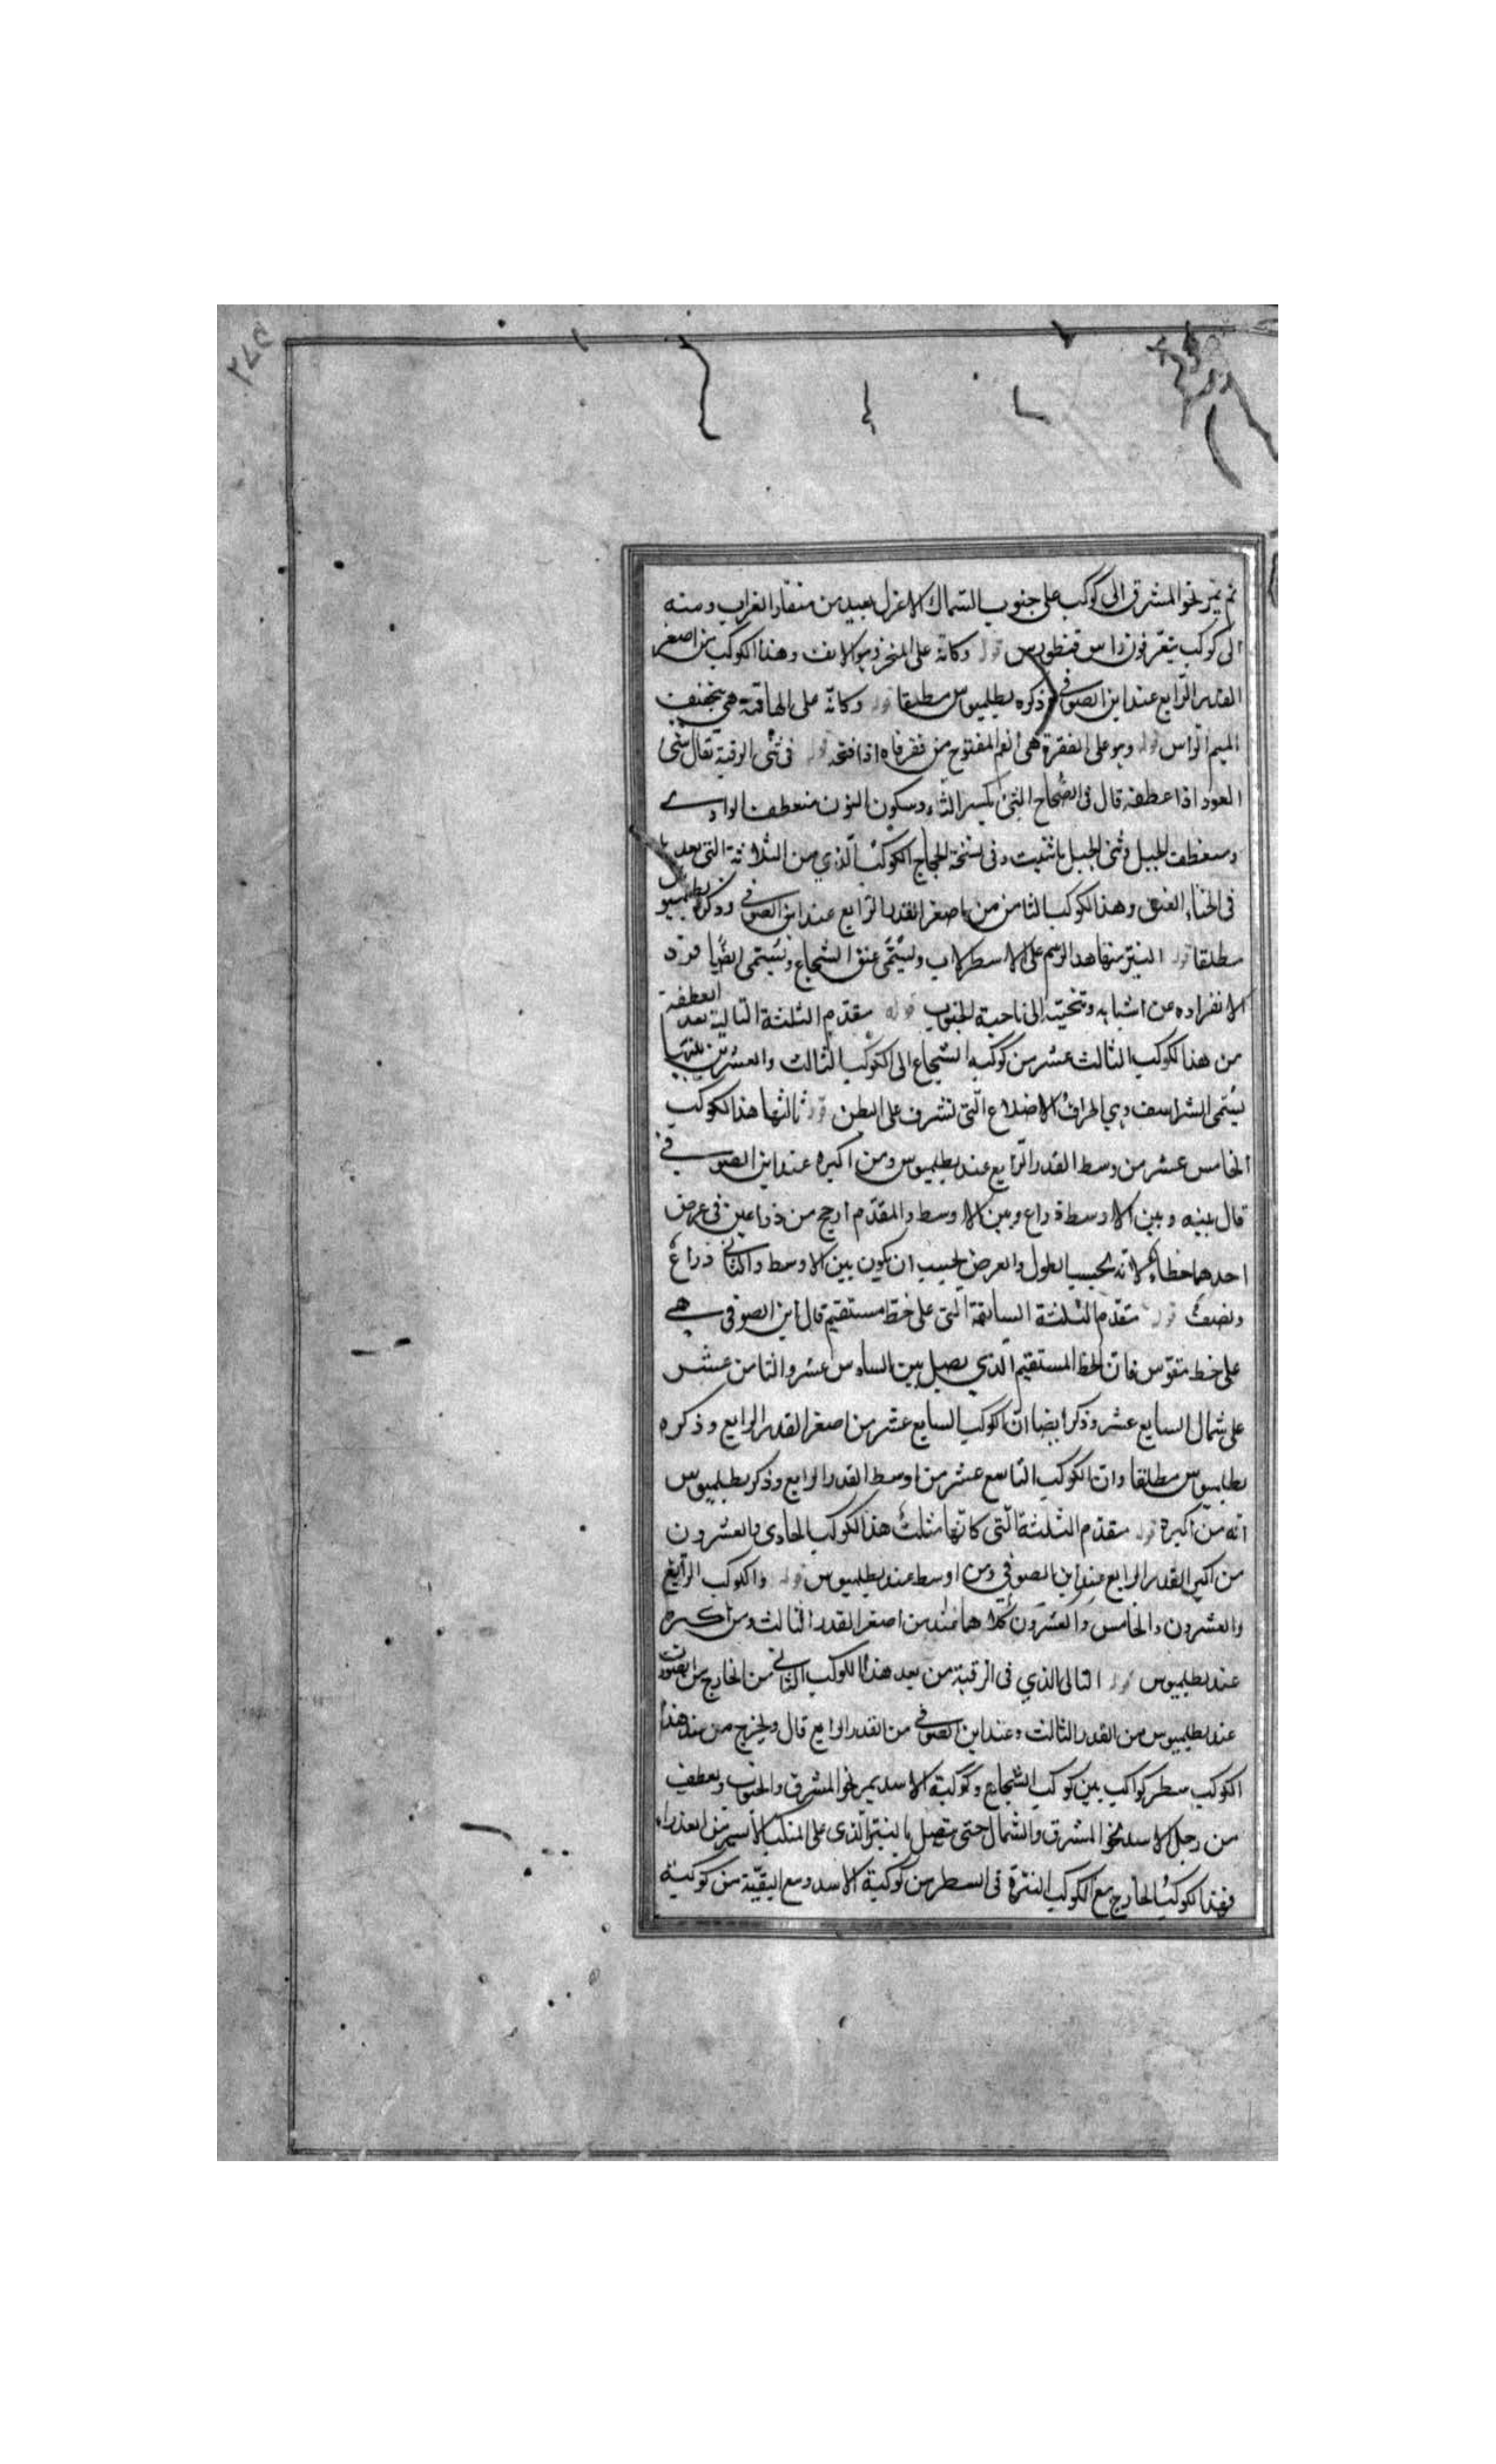 ثم يمر نحو المشرق الى كوكب على جنوب السماك الاعزل بعيد من منقار الغراب ومنه
الى كوكب يتقرفون راس قنطورس قوله وكانه على المنخر وهو الانف وهذا الكوكب من اصغر
القدر الرابع عند ابن الصوفي وذكره بطلميوس مطلقا قوله وكانه على الهامة هي بتخفيف
الميم الراس قوله وهو على الفقرة هى الفم المفتوح من فغر فاه اذا فتحه قوله فى ثنى الرقبة يقال ثنى
العود اذا عطفه قال فى الصحاح الثنى بكسر الثاء وسكون النون منعطف الوادي
ومنعطف الجبل وثنى الحبل ما ثنيت وفى نسخة الحجاج الكوكب الذي من الثلاثة التى بعدها
فى انحناء العنق وهذا الكوكب الثامن من اصغر القدر الرابع عند ابن الصوفي وذكره بطلميوس
مطلقا قوله النير منها هذا الرسم على الاسطرلاب ويسمى عنق الشجاع ويسمى ايضا فرد
لانفراده عن اشباهه وتنحيته الى ناحية الجنوب قوله مقدم الثلثة التالية بعد العطفة
من هذا الكوكب الثالث عشر من كوكبه الشجاع الى الكوكب الثالث والعشرين
يسمى الشراسف وهي اطراف الاضلاع التى تشرف على البطن قوله ثالثها هذا الكوكب
الخامس عشر من وسط القدر الرابع عند بطلميوس ومن اكبره عند ابن الصوفي
قال بينه وبين الاوسط ذراع وبين الاوسط والمقدم ارجح من ذراعين فى عرض
احدهما خطاء لانه بحسب الطول والعرض يجب ان يكون بين الاوسط والثانى ذراع
ونصف قوله متقدم الثلثة السابقة التى على خط مستقيم قال ابن الصوفى هي
على خط مقوس فان الخط المستقيم الذي يصل بين السادس عشر والثامن عشر
على شمال السابع عشر وذكر ايضا ان الكوكب السابع عشر من اصغر القدر الرابع وذكره
بطلميوس مطلقا وان الكوكب التاسع عشر من اوسط القدر الرابع وذكر بطلميوس
انه من اكبره قوله متقدم الثلثة التى كانها مثلث هذا الكوكب الحادى والعشرون
من اكبر القدر الرابع عند ابن الصوفي ومن اوسط عند بطلميوس قوله والكوكب الرابع
والعشرون والخامس والعشرون كلاهما عنده من اصغر القدر الثالث ومن اكبره
عند بطلميوس قوله التالى الذي فى الرقبة من بعد هذا الكوكب الثاني من الخارج من الصورة
عند بطلميوس من القدر الثالث وعند ابن الصوفي من القدر الرابع قال ويخرج من عند هذا
الكوكب سطر كواكب بين كوكب الشجاع وكوكبة الاسد يمر نحو المشرق والجنوب ويعطف
من رجل الاسد نحو المشرق والشمال حتى يتصل بالنير الذى على المنكب الايسر من العذراء
فهذا الكوكب الخارج مع الكوكب النثرة فى السطر من كوكبة الاسد ومع البقية من كوكبة